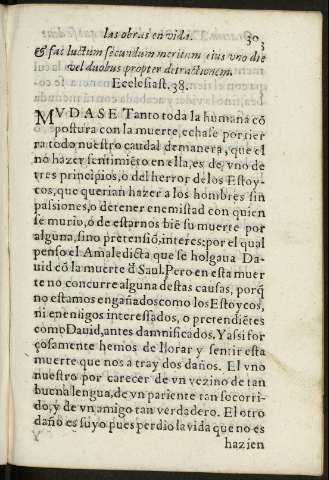 las obras en vida. 30
3
& fac luctum secundum meritum eius vno die
vel duobus propter detractionem.
Ecclesiast. 38.
MVDASE Tanto toda la humana cõ
postura con la muerte, echase por tier
ra todo nuestro caudal de manera, que el
no hazer sentimiẽto en ella, es de, vno de
tres principios, o del herror de los Estoy-
cos, que querian hazer a los hombres sin
passiones, o de tener enemistad con quien
se murio, ó de estarnos biẽ su muerte por
alguna, sino pretensiõ, interes: por el qual
penso el Amaledicta que se holgaua Da-
uid cõ la muerte đ Saul. Pero en esta muer
te no concurre alguna destas causas, porq̃
no estamos engañados como los Estoycos,
ni enemigos interessados, o pretendiẽtes
como Dauid, antes damnificados. Y assi for
çosamente hemos de llorar y sentir esta
muerte que nos a tray dos daños. El vno
nuestro por carecer de vn vezino de tan
buena lengua, de vn pariente tan socorri-
do, y de vn amigo tan verdadero. El otro
daño es suyo pues perdio la vida que no es
hazien